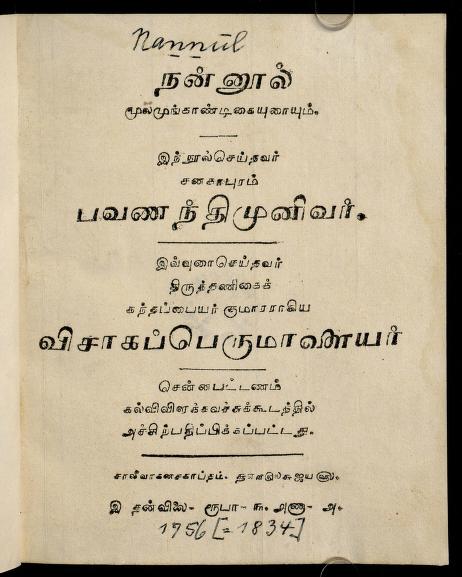 Nannūl
நன்னூல்
மூலமுங்காண்டிகையுரையும்.
இந்நூல்செய்தவர்
சனகாபுரம்
பவணந்திமுனிவர்.
இவ்வுரைசெய்தவர்
திருத்தணிகைக்
கந்தப்பையர் குமாரராகிய
விசாகப்பெருமாளையர்
சென்னபட்டணம்
கல்விவிளக்கவச்சுக்கூடத்தில்
அச்சிற்பதிப்பிக்கப்பட்டது.
சாலிவாகனசகாப்தம்.
இ தன்விலை- ரூபா- ௩. அணு- அ.
1756 [=1834]